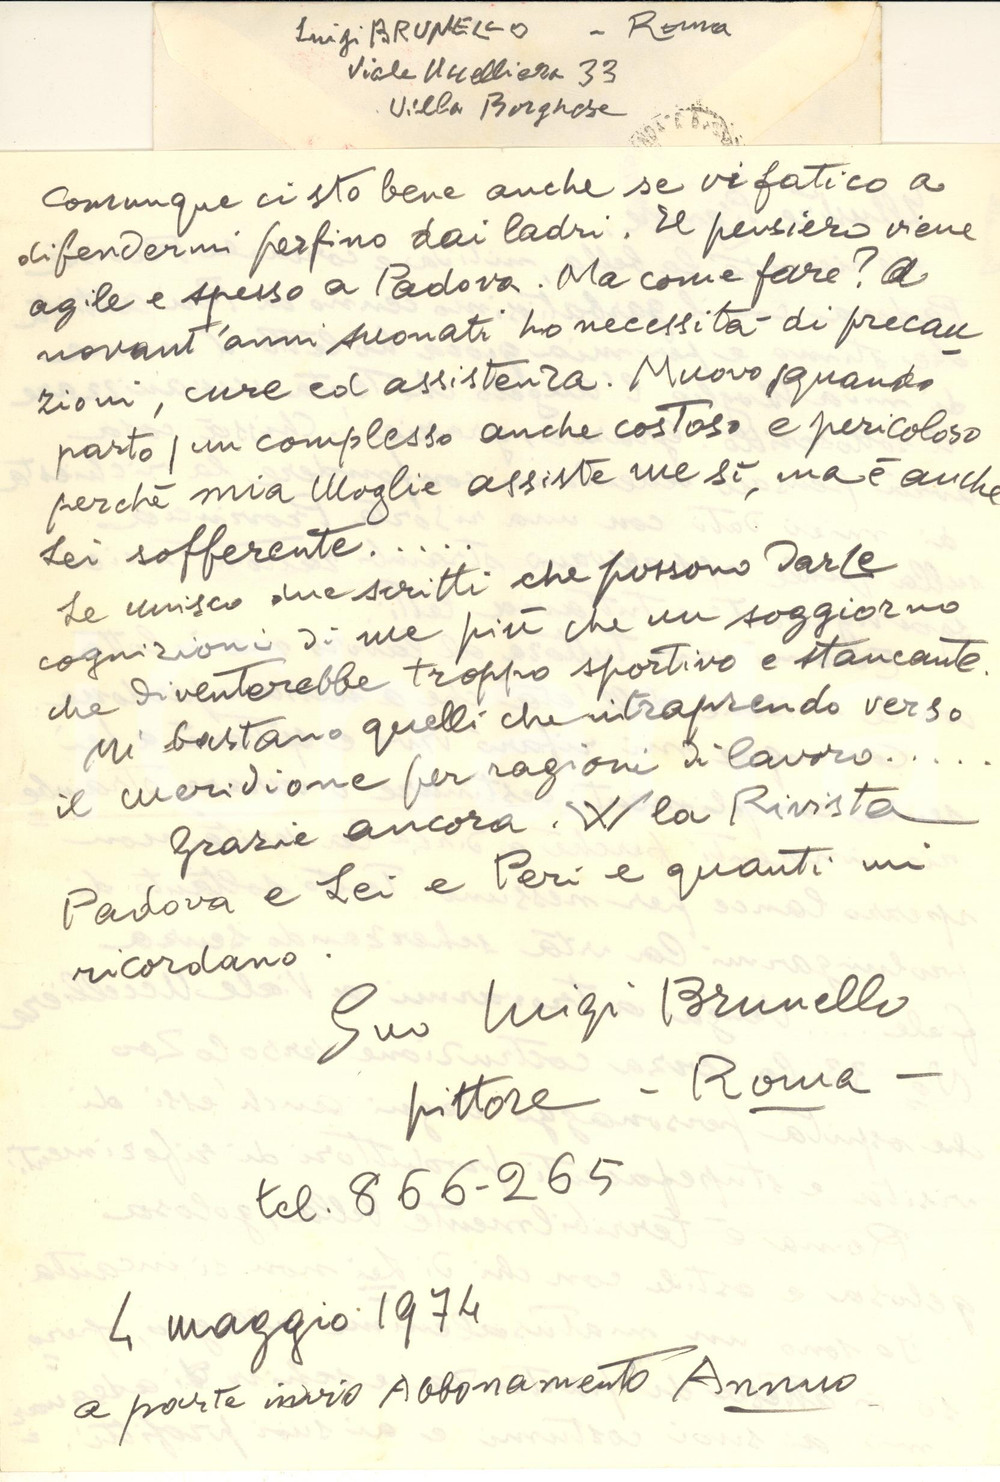 Luigi BRUNELLO - Roma
Viale Uccelliera 33
Villa Borghese
Comunque ci sto bene anche se vi fatico a
difendermi perfino dai ladri. Il pensiero viene
agile e spesso a Padova. Ma come fare? A
novant'anni suonati ho necessità di precau
zioni, cure ed assistenza. Muovo, quando
parto, un complesso anche costoso e pericoloso
perché mia Moglie assiste me sì, ma è anche
Lei sofferente.....
Le unisco due scritti che possono darLe
cognizioni di me più che un soggiorno
che diventerebbe troppo sportivo e stancante.
Mi bastano quelli che intraprendo verso
il meridione per ragioni di lavoro.....
Grazie ancora. W la Rivista
Padova e Lei e Peri e quanti mi
ricordano.
Suo Luigi Brunello
pittore - Roma -
tel. 866-265
4 maggio 1974
a parte invio Abbonamento Annuo